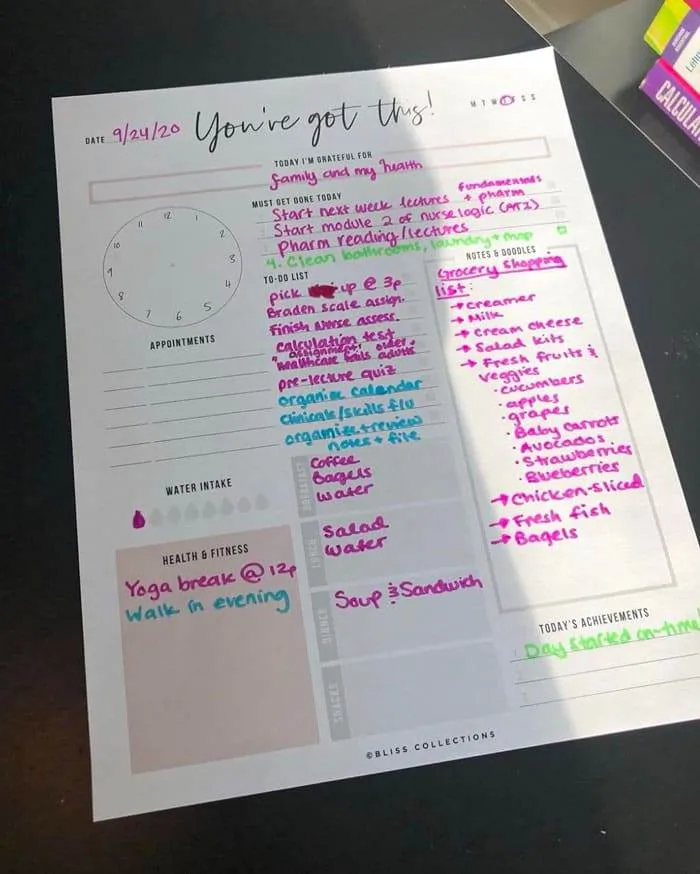 DATE 9/24/20 You've got this! M T W T F S S
TODAY I'M GRATEFUL FOR
family and my health
MUST GET DONE TODAY
Start next week lectures fundamentals + pharm
Start module 2 of nurse logic (ATI)
Pharm reading/lectures
4. Clean bathrooms, laundry + mop
12
1
2
3
4
5
6
7
8
9
10
11
APPOINTMENTS
TO-DO LIST
pick up @ 3p
Braden scale assign.
Finish Nurse assess.
calculation test
"assignment" older
healthcare adults
pre-lecture quiz
organize calendar
clinicals/skills flu
organize + review
notes + file
NOTES & DOODLES
Grocery shopping
list:
→ creamer
→ Milk
→ cream cheese
→ Salad kits
→ Fresh fruits &
veggies
• cucumbers
• apples
• grapes
• Baby carrots
• Avocados
• Strawberries
• Blueberries
→ Chicken-sliced
→ Fresh fish
→ Bagels
WATER INTAKE
HEALTH & FITNESS
Yoga break @ 12p
Walk in evening
BREAKFAST
Coffee
Bagels
water
LUNCH
Salad
water
DINNER
Soup & Sandwich
SNACKS
TODAY'S ACHIEVEMENTS
Day started on-time!
©BLISS COLLECTIONS
CALCULA